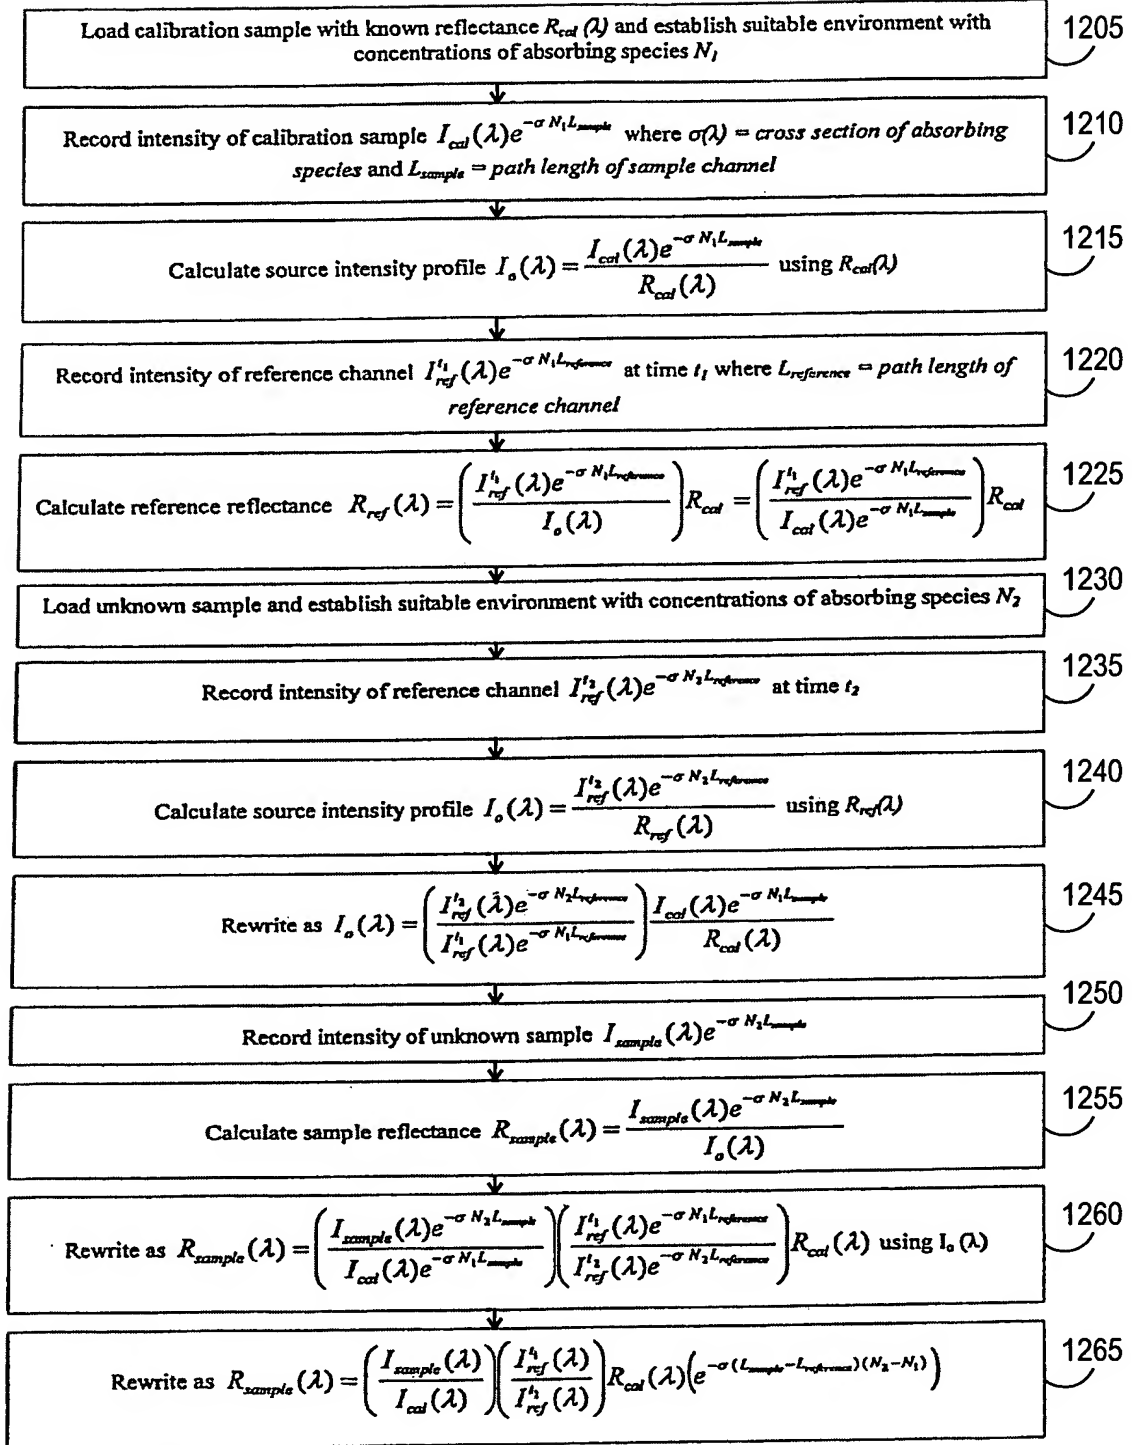 Load calibration sample with known reflectance R_cal (λ) and establish suitable environment with
concentrations of absorbing species N_1
1205
Record intensity of calibration sample I_cal(λ)e^{-σ N_1 L_sample} where σ(λ) = cross section of absorbing
species and L_sample = path length of sample channel
1210
Calculate source intensity profile I_o(λ) = \frac{I_cal(λ)e^{-σ N_1 L_sample}}{R_cal(λ)} using R_cal(λ)
1215
Record intensity of reference channel I_ref^{t_1}(λ)e^{-σ N_1 L_reference} at time t_1 where L_reference = path length of
reference channel
1220
Calculate reference reflectance R_ref(λ) = \left(\frac{I_ref^{t_1}(λ)e^{-σ N_1 L_reference}}{I_o(λ)}\right) R_cal = \left(\frac{I_ref^{t_1}(λ)e^{-σ N_1 L_reference}}{I_cal(λ)e^{-σ N_1 L_sample}}\right) R_cal
1225
Load unknown sample and establish suitable environment with concentrations of absorbing species N_2
1230
Record intensity of reference channel I_ref^{t_2}(λ)e^{-σ N_2 L_reference} at time t_2
1235
Calculate source intensity profile I_o(λ) = \frac{I_ref^{t_2}(λ)e^{-σ N_2 L_reference}}{R_ref(λ)} using R_ref(λ)
1240
Rewrite as I_o(λ) = \left(\frac{I_ref^{t_2}(λ)e^{-σ N_2 L_reference}}{I_ref^{t_1}(λ)e^{-σ N_1 L_reference}}\right) \frac{I_cal(λ)e^{-σ N_1 L_sample}}{R_cal(λ)}
1245
Record intensity of unknown sample I_sample(λ)e^{-σ N_2 L_sample}
1250
Calculate sample reflectance R_sample(λ) = \frac{I_sample(λ)e^{-σ N_2 L_sample}}{I_o(λ)}
1255
Rewrite as R_sample(λ) = \left(\frac{I_sample(λ)e^{-σ N_2 L_sample}}{I_cal(λ)e^{-σ N_1 L_sample}}\right)\left(\frac{I_ref^{t_1}(λ)e^{-σ N_1 L_reference}}{I_ref^{t_2}(λ)e^{-σ N_2 L_reference}}\right) R_cal(λ) using I_o(λ)
1260
Rewrite as R_sample(λ) = \left(\frac{I_sample(λ)}{I_cal(λ)}\right)\left(\frac{I_ref^{t_1}(λ)}{I_ref^{t_2}(λ)}\right) R_cal(λ)\left(e^{-σ(L_sample-L_reference)(N_2-N_1)}\right)
1265